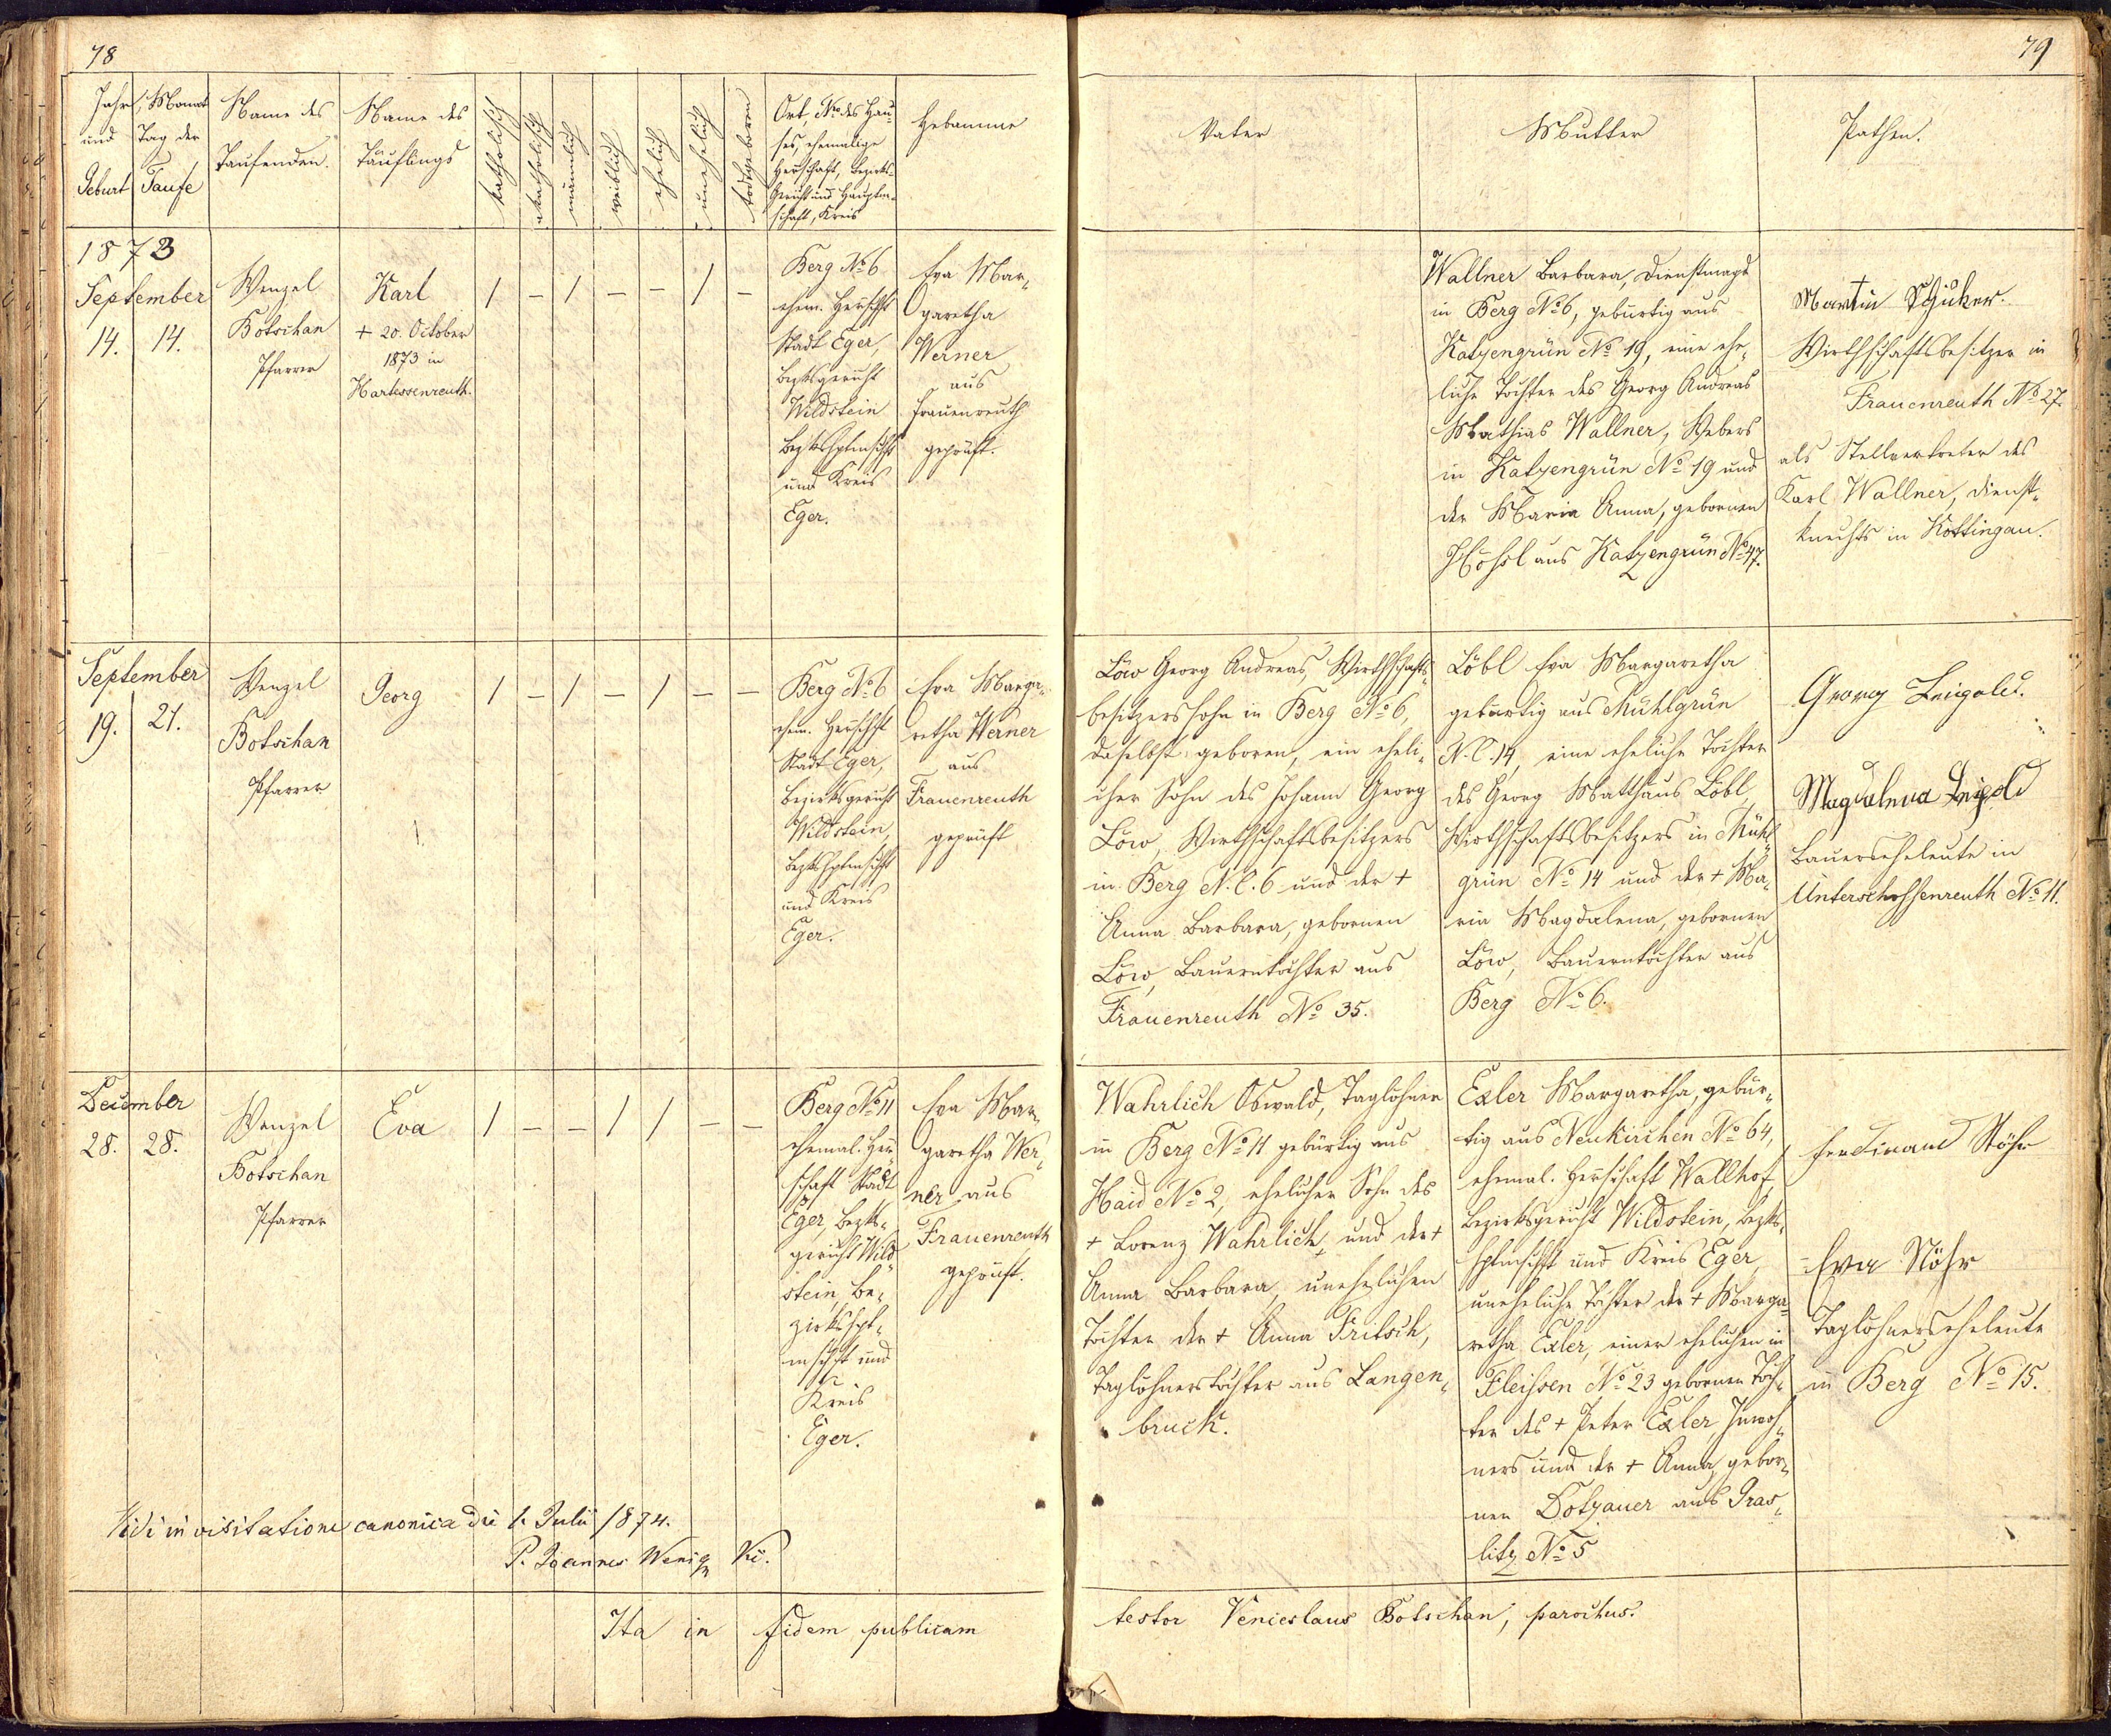 78
79
Jahr, Monat
und Tag der
Geburt Taufe
Name des
Taufenden.
Name des
Täuflings
katholisch
akatholisch
männlich
weiblich
ehelich
unehelich
todtgeboren
Ort, Nro des Hau-
ses, ehemalige
Herrschaft, Bezirks-
Gericht und Hauptm-
schaft, Kreis
Hebamme
Vater
Mutter
Pathen.
1873
September
14. 14.
Wenzel
Botschan
Pfarrer
Karl
+ 20. October
1873 in
Hartessenreuth.
/ - / - - / -
Berg No 6
ehem. Herrschft
Stadt Eger,
Bezksgericht
Wildstein
Bezkshptmschft
und Kreis
Eger.
Eva Mar-
garetha
Werner
aus
Frauenreuth
geprüft.
Wallner Barbara, Dienstmagd
in Berg No 6, gebürtig aus
Katzengrün No 19, eine ehe-
liche Tochter des Georg Andreas
Mathias Wallner, Webers
in Katzengrün No 19 und
der Maria Anna, gebornen
Hössl aus Katzengrün No 47.
Martin
Wirthschaftsbesitzer in
Frauenreuth No 27.
als Stellvertreter des
Karl Wallner, Dienst-
knechts in Kottingau.
September
19. 21.
Wenzel
Botschan
Pfarrer
Georg
/ - / - / - -
Berg No 6
ehem. Herrschft
Stadt Eger,
Bezirksgericht
Wildstein,
Bezkshptmschft
und Kreis
Eger.
Eva Marga-
retha Werner
aus
Frauenreuth
geprüft
Löw Georg Andreas, Wirthschafts-
besitzerssohn in Berg No 6,
daselbst geboren, ein eheli-
cher Sohn des Johann Georg
Löw, Wirthschaftsbesitzers
in Berg N.C. 6 und der +
Anna Barbara, gebornen
Löw, Bauerntochter aus
Frauenreuth No 35.
Löbl Eva Margaretha
gebürtig aus Mühlgrün
N.C. 14, eine eheliche Tochter
des Georg Matthäus Löbl,
Wirthschaftsbesitzers in Mühl-
grün No 14 und der + Ma-
ria Magdalena, gebornen
Löw, Bauerntochter aus
Berg No 6.
Georg Leigold.
Magdalena Leigold
Bauerseheleute in
Unterschossenreuth No 11.
December
28. 28.
Wenzel
Botschan
Pfarrer
Eva
/ - - / / - -
Berg No 11
ehemal. Herr-
schaft Stadt
Eger, Bezks-
gericht Wild-
stein, Be-
zirkshpt-
mschft und
Kreis
Eger.
Eva Mar-
garetha Wer-
ner aus
Frauenreuth
geprüft.
Wahrlich Oswald, Taglöhner
in Berg No 11 gebürtig aus
Haid No 2, ehelicher Sohn des
+ Lorenz Wahrlich, und der +
Anna Barbara, unehelichen
Tochter der + Anna Fritsch,
Taglöhnerstochter aus Langen-
bruck.
Exler Margaretha, gebür-
tig aus Neukirchen No 64,
ehemal. Herrschaft Wallhof,
Bezirksgericht Wildstein, Bezks-
hptmschft und Kreis Eger,
uneheliche Tochter der + Marga-
retha Exler, einer ehelichen in
Fleissen No 23 gebornen Toch-
ter des + Peter Exler, Inwoh-
ners und der + Anna, gebor-
nen Dotzauer aus Gras-
litz No 5
Ferdinand Stöhr
Eva Stöhr
Taglöhnerseheleute
in Berg No 15.
Vidi in visitatione canonica die 1. Julii 1874.
P. Joannes Wenig
Ita in fidem publicam
testor Venceslaus Botschan, parochus.